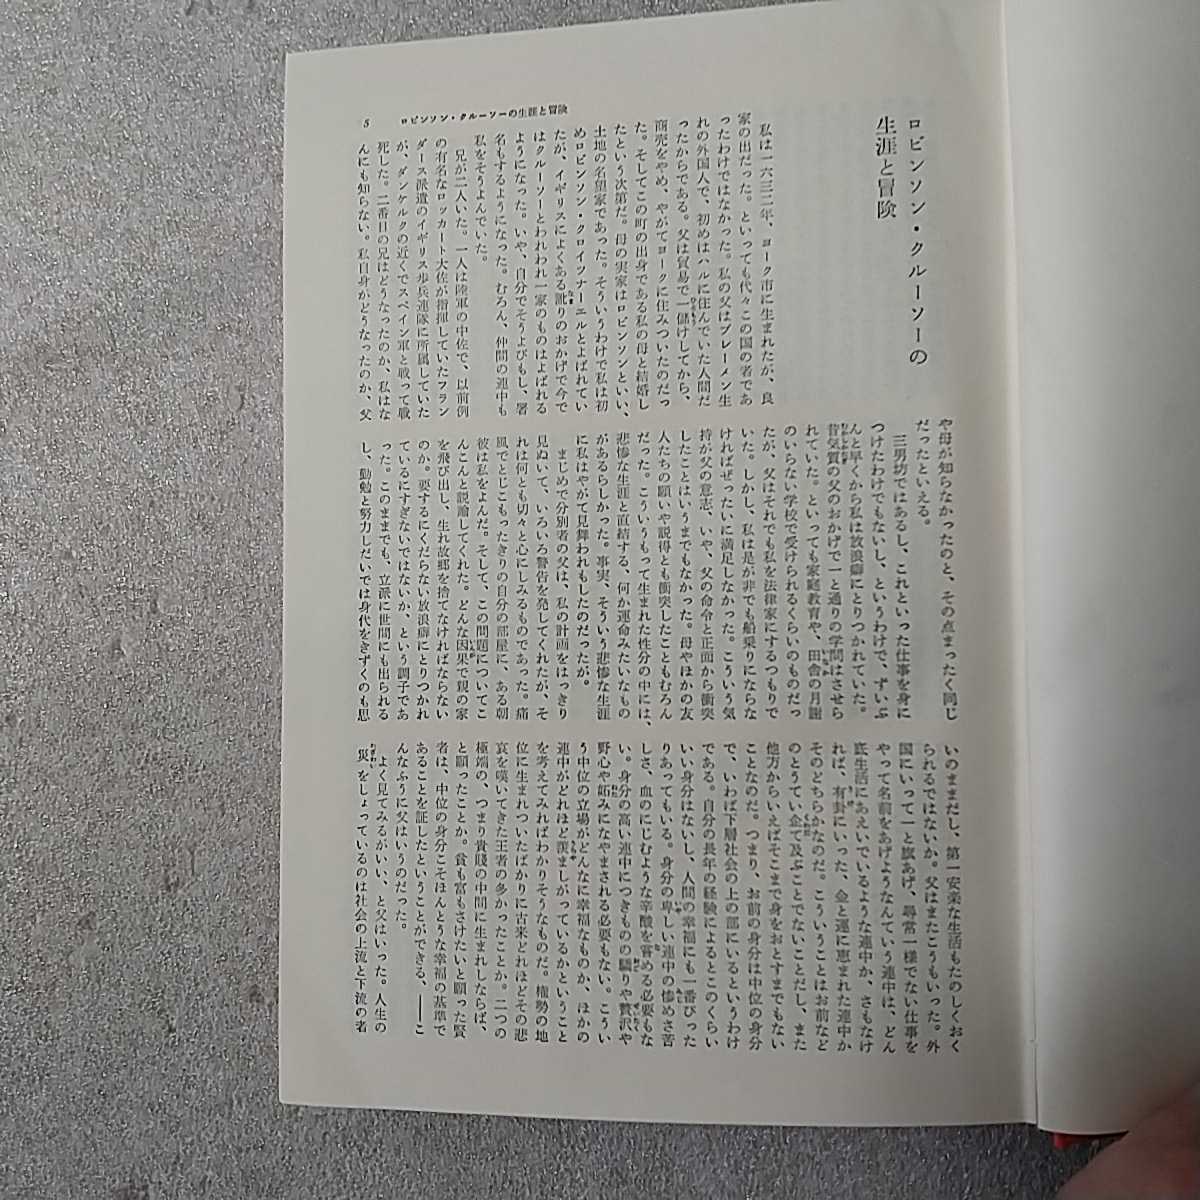 5　ロビンソン・クルーソーの生涯と冒険
ロビンソン・クルーソーの
生涯と冒険
私は一六三二年、ヨーク市に生まれたが、良
家の出だった。といっても代々この国の者であ
ったわけではなかった。私の父はブレーメン生
れの外国人で、初めはハルに住んでいた人間だ
ったからである。父は貿易で一儲けしてから、
商売をやめ、やがてヨークに住みついたのだっ
た。そしてこの町の出身である私の母と結婚し
たという次第だ。母の実家はロビンソンといい、
土地の名望家であった。そういうわけで私は初
めロビンソン・クロイツナーエルとよばれてい
たが、イギリスによくある訛りのおかげで今で
はクルーソーとわれわれ一家のものはよばれる
ようになった。いや、自分でそうよびもし、署
名もするようになった。むろん、仲間の連中も
私をそうよんでいた。
兄が二人いた。一人は陸軍の中佐で、以前例
の有名なロッカート大佐が指揮していたフラン
ダース派遣のイギリス歩兵連隊に所属していた
が、ダンケルクの近くでスペイン軍と戦って戦
死した。二番目の兄はどうなったのか、私はな
んにも知らない。私自身がどうなったのか、父
や母が知らなかったのと、その点まったく同じ
だったといえる。
三男坊ではあるし、これといった仕事を身に
つけたわけでもないし、というわけで、ずいぶ
んと早くから私は放浪癖にとりつかれていた。
昔気質の父のおかげで一と通りの学問はさせら
れていた。といっても家庭教育や、田舎の月謝
のいらない学校で受けられるくらいのものだっ
たが、父はそれでも私を法律家にするつもりで
いた。しかし、私は是が非でも船乗りにならな
ければぜったいに満足しなかった。こういう気
持が父の意志、いや、父の命令と正面から衝突
したことはいうまでもなかった。母やほかの友
人たちの願いや説得とも衝突したこともむろん
だった。こういうもって生まれた性分の中には、
悲惨な生涯と直結する、何か運命みたいなもの
があるらしかった。事実、そういう悲惨な生涯
に私はやがて見舞われもしたのだったが。
まじめで分別者の父は、私の計画をはっきり
見ぬいて、いろいろ警告を発してくれたが、そ
れは何とも切々と心にしみるものであった。痛
風でとじこもったきりの自分の部屋に、ある朝
彼は私をよんだ。そして、この問題についてこ
んこんと説諭してくれた。どんな因果で親の家
を飛び出し、生れ故郷を捨てなければならない
のか。要するにくだらない放浪癖にとりつかれ
ているにすぎないではないか、という調子であ
った。このままでも、立派に世間にも出られる
し、勤勉と努力しだいでは身代をきずくのも思
いのままだし、第一安楽な生活もたのしくおく
られるではないか。父はまたこうもいった。外
国にいって一と旗あげ、尋常一様でない仕事を
やって名前をあげようなんていう連中は、どん
底生活にあえいでいるような連中か、さもなけ
れば、有卦にいった、金と運に恵まれた連中か
そのどちらかなのだ。こういうことはお前など
のとうてい企て及ぶことでないことだし、また
他方からいえばそこまで身をおとすまでもない
ことなのだ。つまり、お前の身分は中位の身分
で、いわば下層社会の上の部にいるというわけ
である。自分の長年の経験によるとこのくらい
いい身分はないし、人間の幸福にも一番ぴった
りあってもいる。身分の卑しい連中の惨めさ苦
しさ、血のにじむような辛酸を嘗める必要もな
い。身分の高い連中につきものの驕りや贅沢や
野心や妬みになやまされる必要もない。こうい
う中位の立場がどんなに幸福なものか、ほかの
連中がどれほど羨ましがっているかということ
を考えてみればわかりそうなものだ。権勢の地
位に生まれついたばかりに古来どれほどその悲
哀を嘆いてきた王者の多かったことか。二つの
極端の、つまり貴賤の中間に生まれしならば、
と願ったことか。貧も富もさけたいと願った賢
者は、中位の身分こそほんとうな幸福の基準で
あることを証したということができる、――こ
んなふうに父はいうのだった。
よく見てみるがいい、と父はいった。人生の
災をしょっているのは社会の上流と下流の者